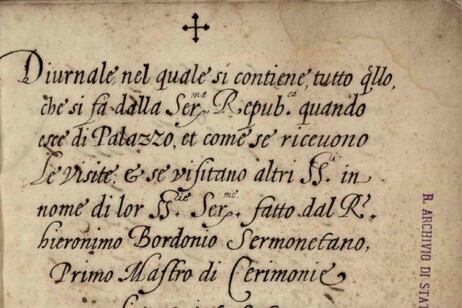 Diurnale nel quale si contiene, tutto q̃llo,
che si fa dalla Ser.ma Repub.ca quando
esce di Palazzo, et come se riceuono
le visite, & se visitano altri SS.ri in
nome di lor SS.rie Ser.me fatto dal R.do
hieronimo Bordonio Sermonetano,
Primo Mastro di Cerimonie
R. ARCHIVIO DI STA